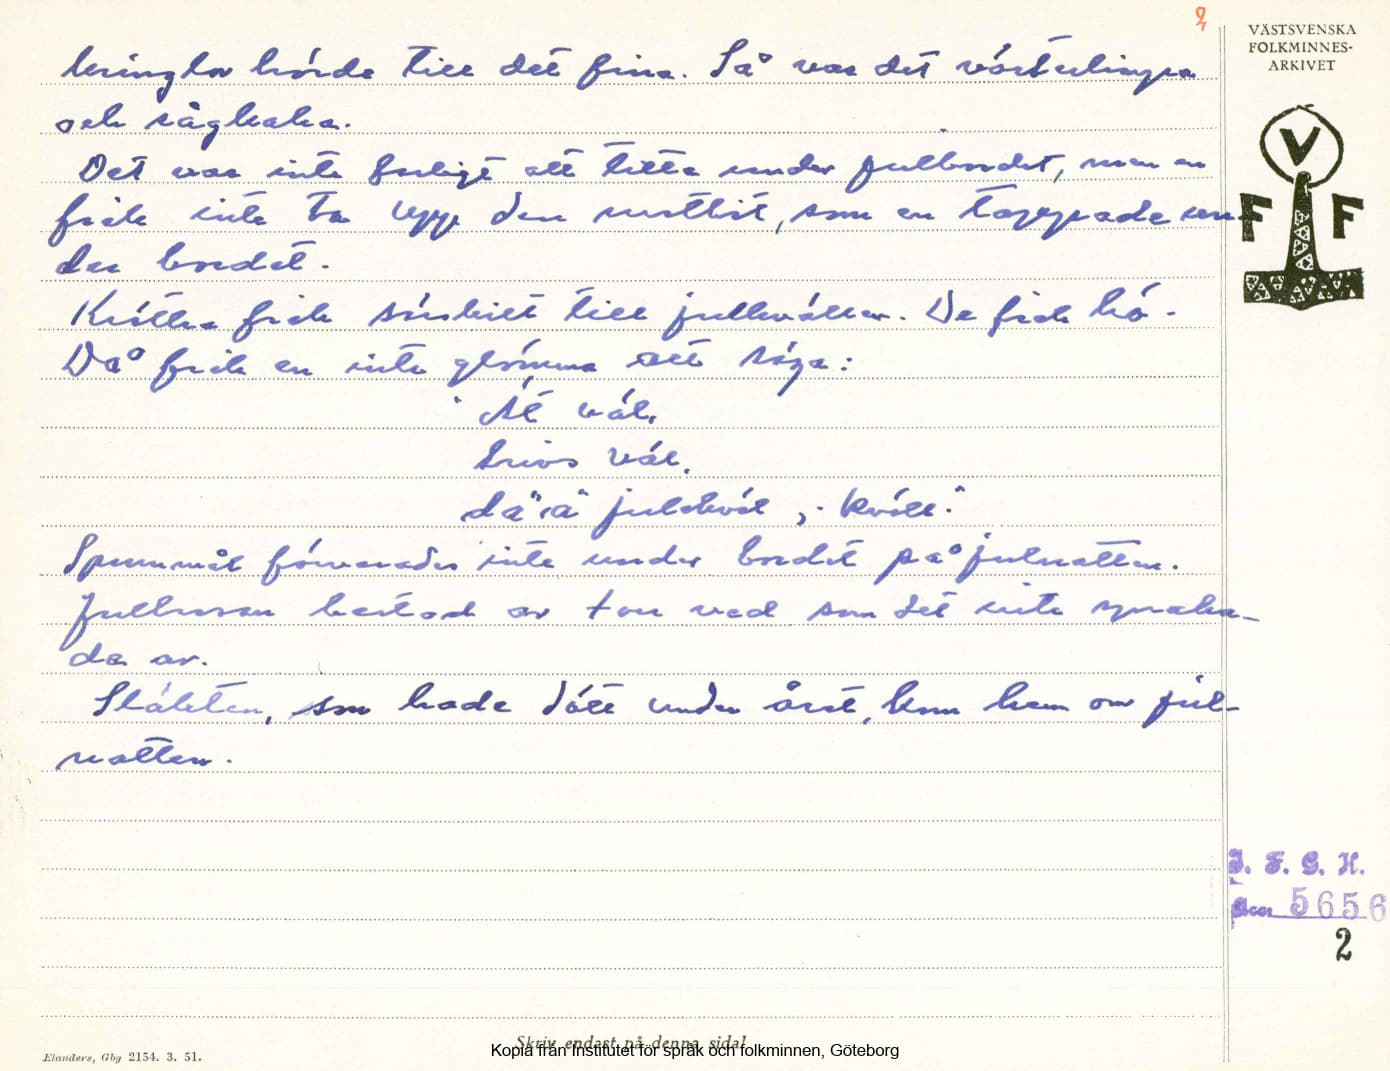 2
VÄSTSVENSKA
FOLKMINNES-
ARKIVET
V
F F
kringlor hörde till det fina. Så var det vörtlimpa
och rågkaka.
Det var inte farligt att titta under julbordet, men en
fick inte ta upp den matbit, som en tappade un-
der bordet.
Kritter fick särskilt till julkvällen. De fick hö.
Då fick en inte glömma att säga:
"Ät väl,
trivs väl,
dä' ä' julakväl, - kväll."
Spannmål förvarades inte under bordet på julnatten.
Julbrasan bestod av torr ved som det inte spraka-
de av.
Släkten, som hade dött under året, kom hem om jul-
natten.
I. F. G. H.
Acc. 5656
2
Skriv endast på denna sida!
Elanders, Gbg 2154. 3. 51.
Kopia från Institutet för språk och folkminnen, Göteborg